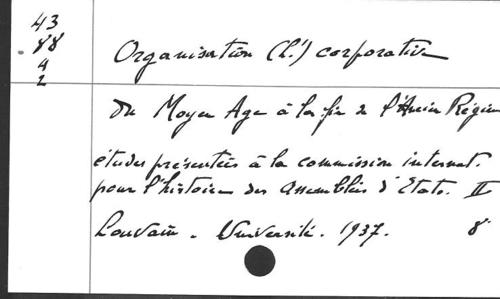 43
88
4
2
Organisation (L') corporative
du Moyen Age à la fin de l'Ancien Régime
études présentées à la commission internat.
pour l'histoire des Assemblées d'Etats. II
Louvain. Université. 1937. 8°